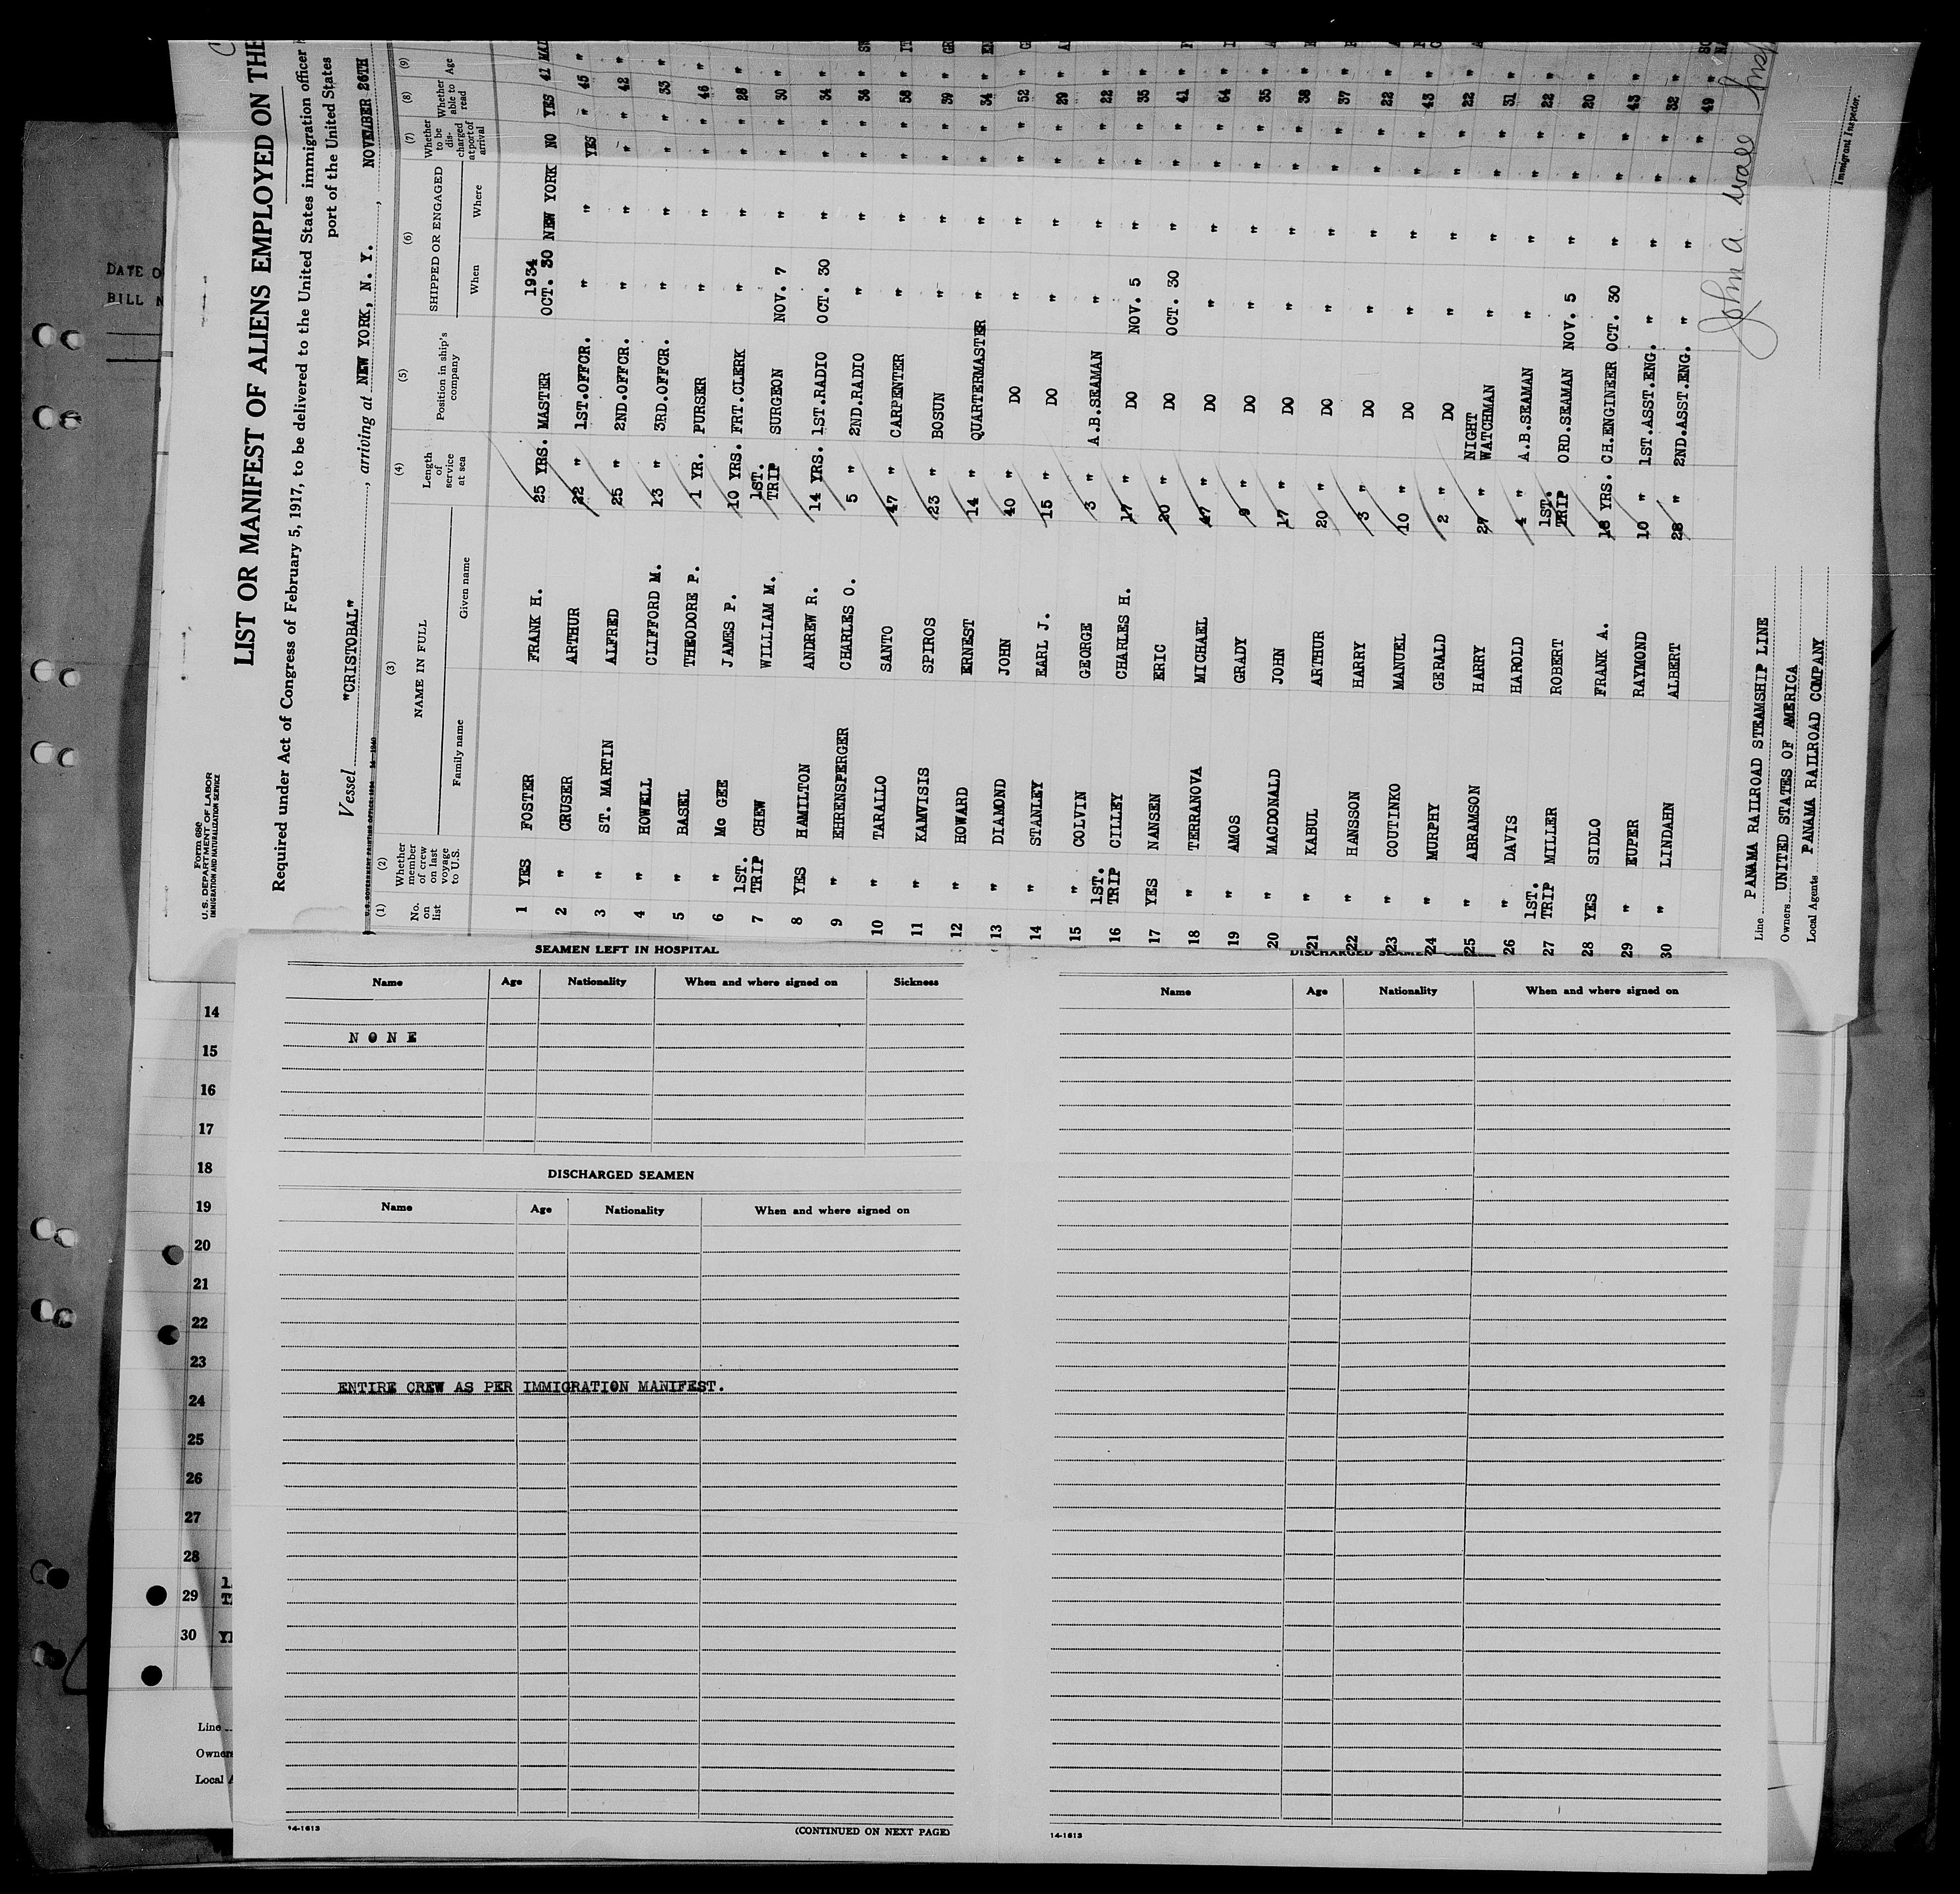 Form 680
U. S. DEPARTMENT OF LABOR
IMMIGRATION AND NATURALIZATION SERVICE
LIST OR MANIFEST OF ALIENS EMPLOYED ON THE
Required under Act of Congress of February 5, 1917, to be delivered to the United States immigration officer
port of the United States
Vessel "CRISTOBAL", arriving at NEW YORK, N. Y., NOVEMBER 26TH
(1) (2) (3) (4) (5) (6) (7) (8) (9)
No. on list
Whether member of crew on last voyage to U.S.
NAME IN FULL
Family name Given name
Length of service at sea
Position in ship's company
SHIPPED OR ENGAGED
When Where
Whether to be discharged at port of arrival
Whether able to read
Age
1 YES FOSTER FRANK H. 25 YRS. MASTER 1934 OCT. 30 NEW YORK NO YES 41
2 " CRUSER ARTHUR 22 " 1ST.OFFCR. " " YES " 45 "
3 " ST. MARTIN ALFRED 25 " 2ND.OFFCR. " " " " 42 "
4 " HOWELL CLIFFORD M. 13 " 3RD.OFFCR. " " " " 33 "
5 " BASEL THEODORE P. 1 YR. PURSER " " " " 46 "
6 " Mc GEE JAMES P. 10 YRS. FRT.CLERK " " " " 28 "
7 1ST. TRIP CHEW WILLIAM M. 1ST. TRIP SURGEON NOV. 7 " " " 30 "
8 YES HAMILTON ANDREW R. 14 YRS. 1ST.RADIO OCT. 30 " " " 34 "
9 " EHRENSPERGER CHARLES O. 5 " 2ND.RADIO " " " " 36 "
10 " TARALLO SANTO 47 " CARPENTER " " " " 58 "
11 " KAMVISIS SPIROS 23 " BOSUN " " " " 39 "
12 " HOWARD ERNEST 14 " QUARTERMASTER " " " " 34 "
13 " DIAMOND JOHN 40 " DO " " " " 52 "
14 " STANLEY EARL J. 15 " DO " " " " 29 "
15 " COLVIN GEORGE 3 " A.B.SEAMAN " " " " 22 "
16 1ST. TRIP CILLEY CHARLES H. 17 " DO NOV. 5 " " " 35 "
17 YES NANSEN ERIC 20 " DO OCT. 30 " " " 41 "
18 " TERRANOVA MICHAEL 47 " DO " " " " 64 "
19 " AMOS GRADY 9 " DO " " " " 35 "
20 " MACDONALD JOHN 17 " DO " " " " 38 "
21 " KABUL ARTHUR 20 " DO " " " " 37 "
22 " HANSSON HARRY 3 " DO " " " " 22 "
23 " COUTINKO MANUEL 10 " DO " " " " 43 "
24 " MURPHY GERALD 2 " DO " " " " 22 "
25 " ABRAMSON HARRY 27 " NIGHT WATCHMAN " " " " 31 "
26 " DAVIS HAROLD 4 " A.B.SEAMAN " " " " 22 "
27 1ST. TRIP MILLER ROBERT 1ST. TRIP ORD.SEAMAN NOV. 5 " " " 20 "
28 YES SIDLO FRANK A. 18 YRS. CH.ENGINEER OCT. 30 " " " 43 "
29 " EUPER RAYMOND 10 " 1ST.ASST.ENG. " " " " 32 "
30 " LINDAHN ALBERT 28 " 2ND.ASST.ENG. " " " " 49 "
Line PANAMA RAILROAD STEAMSHIP LINE
Owners UNITED STATES OF AMERICA
Local Agents PANAMA RAILROAD COMPANY
John A.
Immigrant Inspector.
DATE O
BILL N
SEAMEN LEFT IN HOSPITAL
Name Age Nationality When and where signed on Sickness
NONE
DISCHARGED SEAMEN
Name Age Nationality When and where signed on
ENTIRE CREW AS PER IMMIGRATION MANIFEST.
14-1613
(CONTINUED ON NEXT PAGE)
DISCHARGED SEAMEN
Name Age Nationality When and where signed on
14-1613
14
15
16
17
18
19
20
21
22
23
24
25
26
27
28
29
30
Line
Owners
Local A